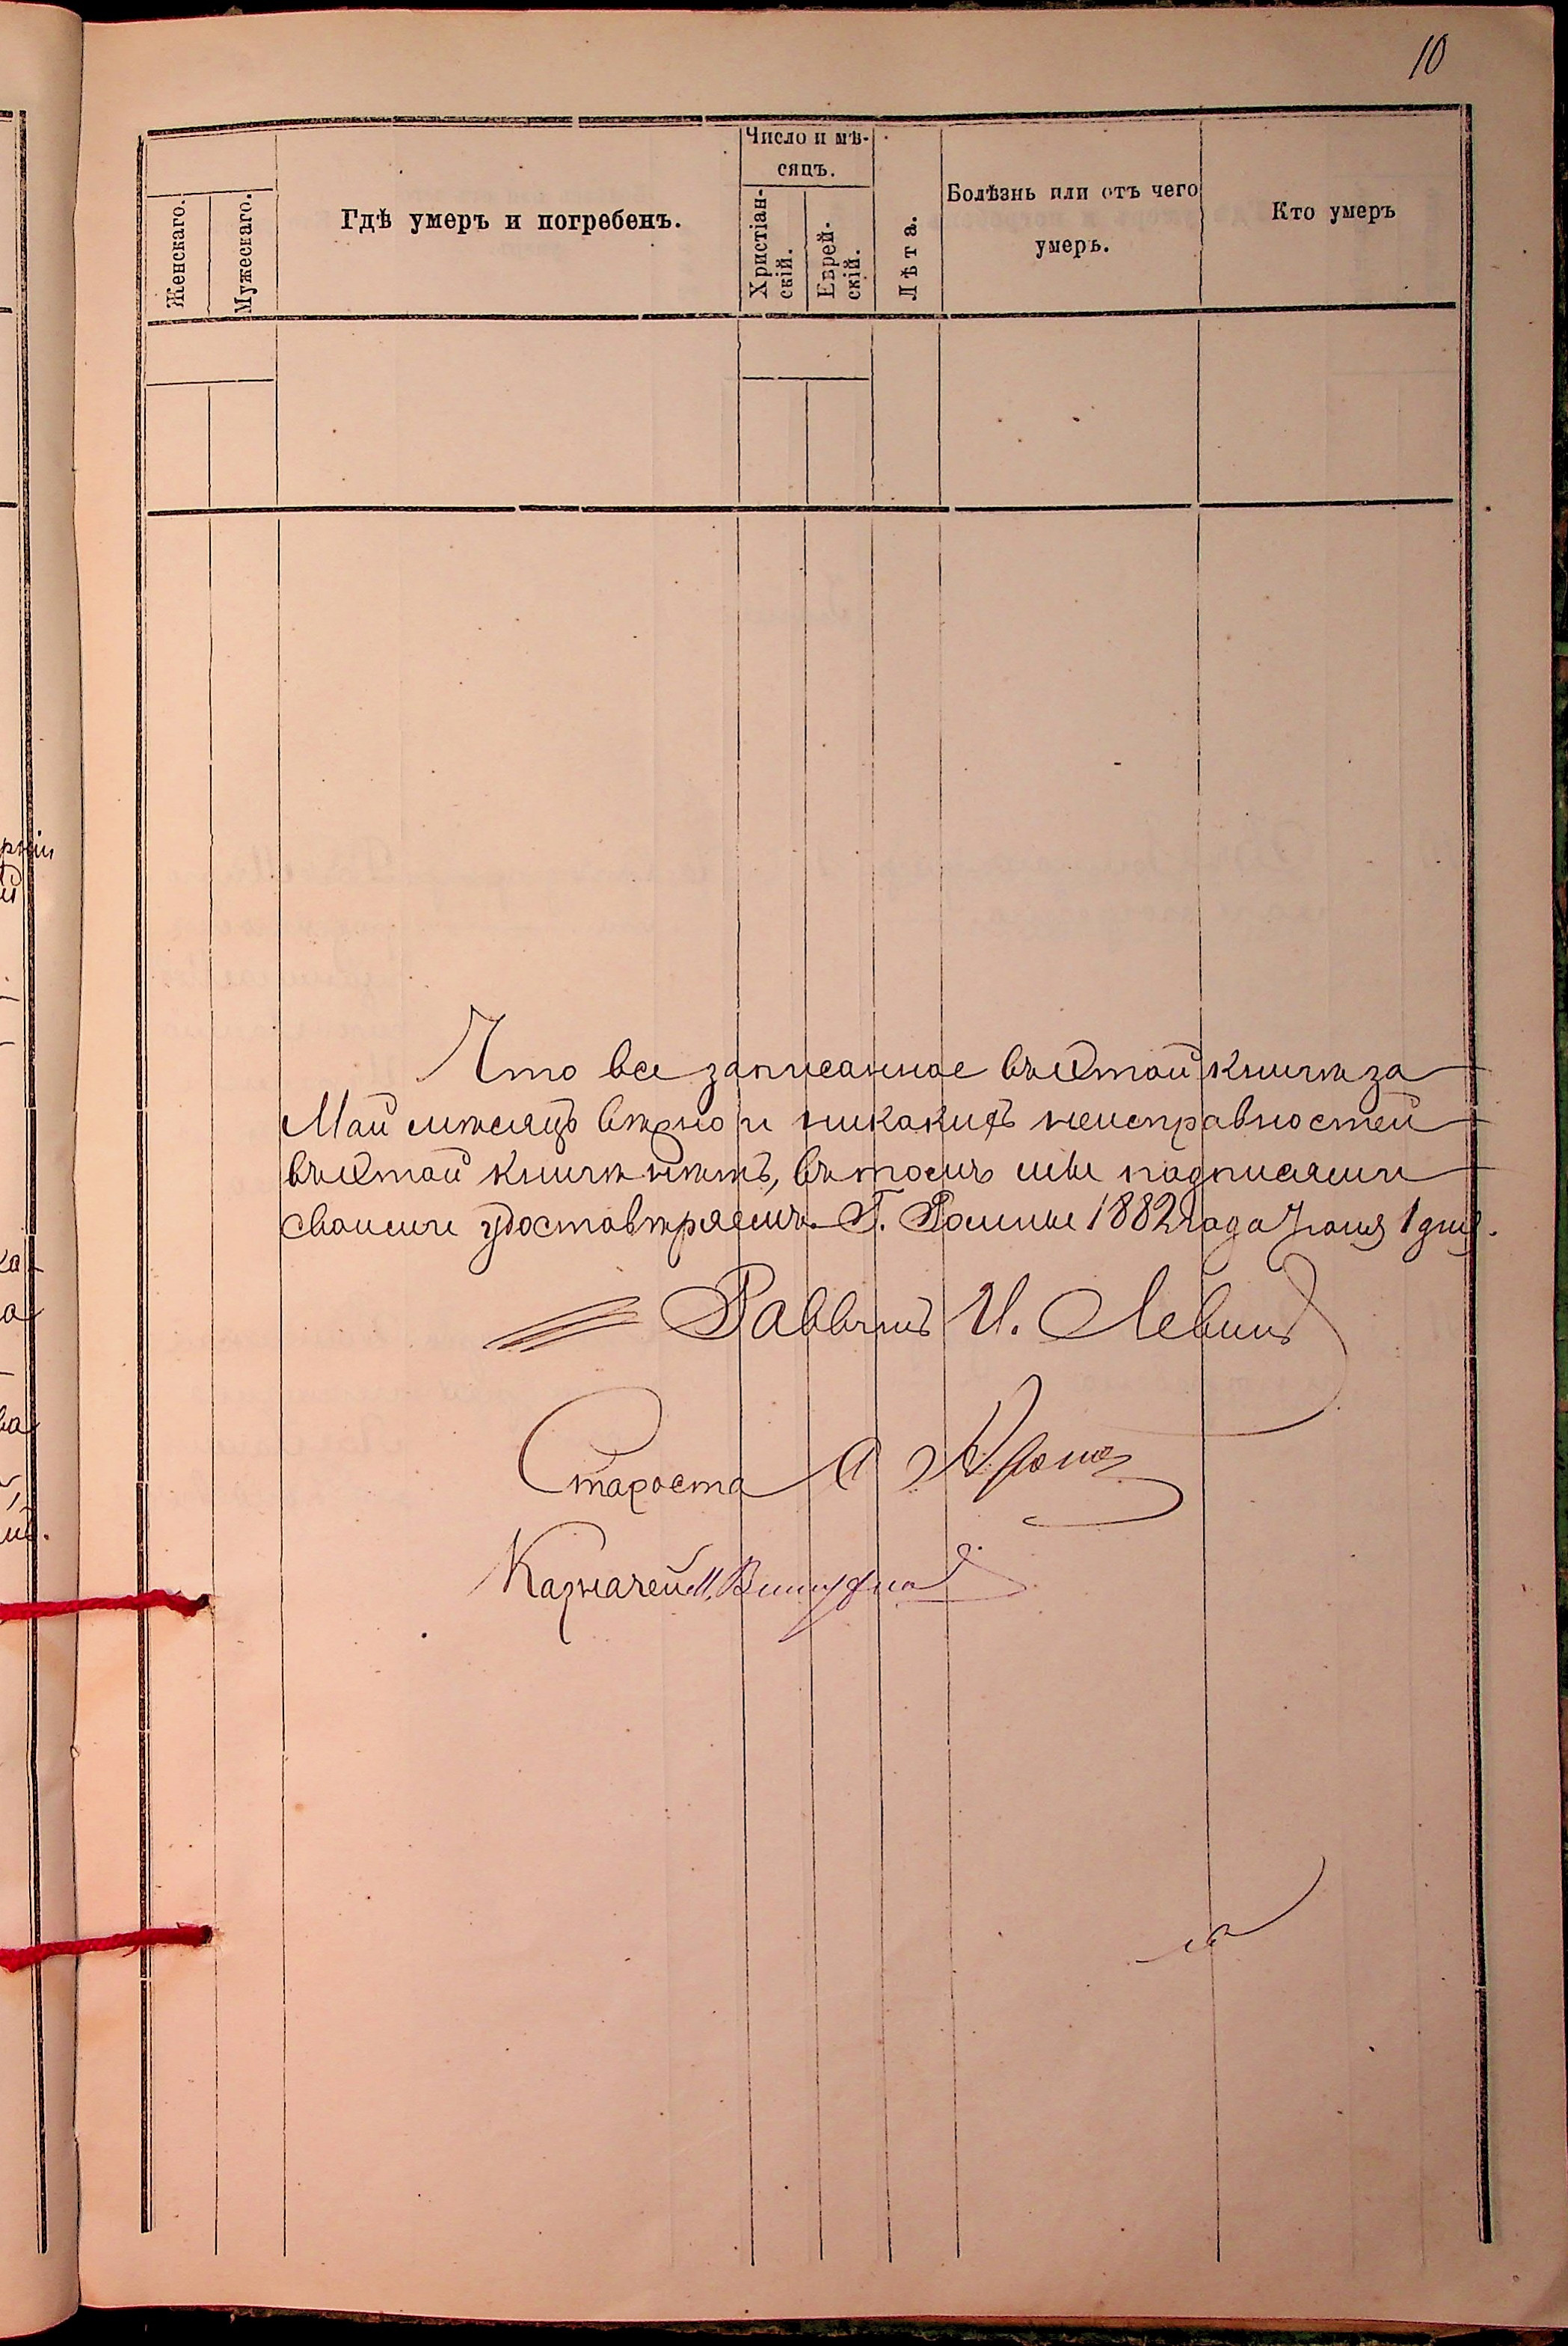 10
Число и мѣ-
сяцъ.
Женскаго.
Мужескаго.
Гдѣ умеръ и погребенъ.
Христіан-
скій.
Еврей-
скій.
Лѣта.
Болѣзнь или отъ чего
умеръ.
Кто умеръ
Что все записанное въ этой книгѣ за
Май мѣсяцъ вѣрно и никакихъ неисправностей
въ этой книгѣ нѣтъ, въ томъ мы подписями
своими удостовѣряемъ. Г. Ромны 1882 года Іюня 1 дня.
Раввинъ И. Левинъ
Староста А
Казначей М.